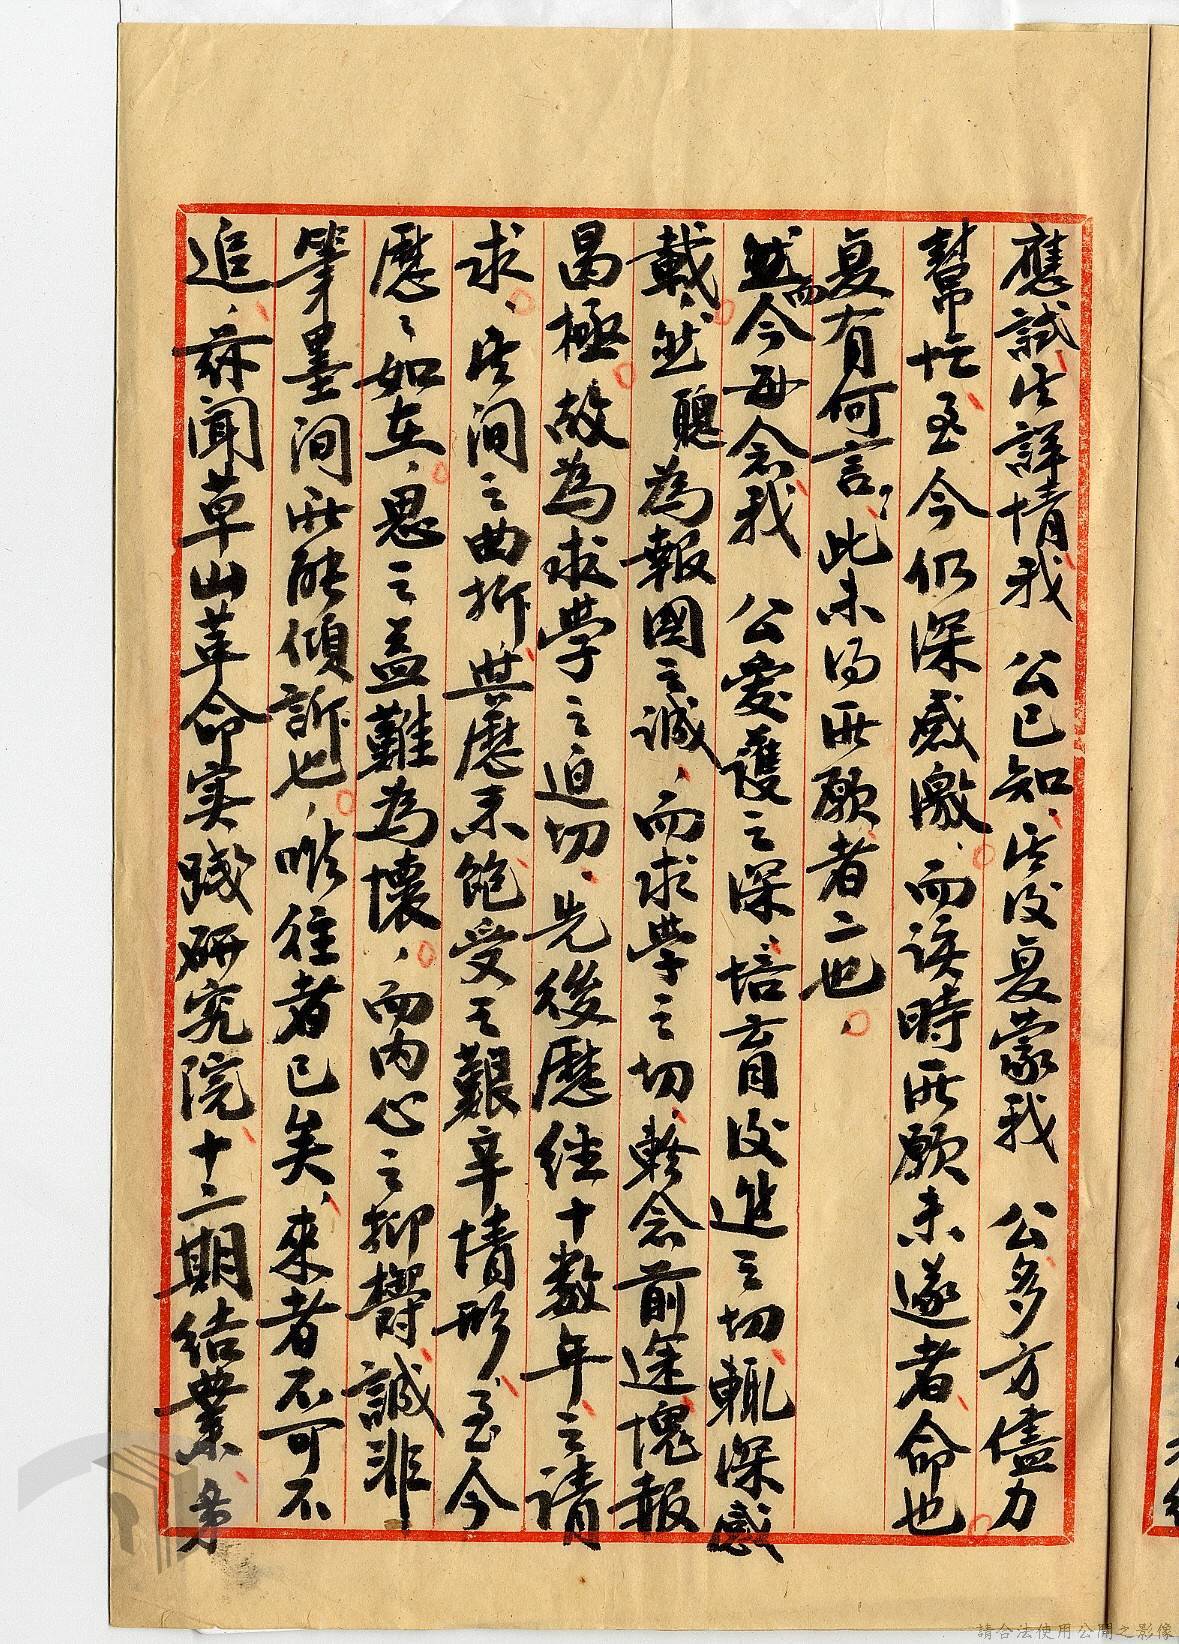 應試、其詳情我　公已知、其後复蒙我　公多方儘力
幫忙、至今仍深感激、而該時所願未遂者、命也
复有何言、此未得所願者二也、
然而今每念我　公愛護之深、培育後進之切、輒深感
載、然聰為報國之誠、而求學之切、軫念前途、愧報
曷極、故為求學之迫切、先後歷經十數年之請
求、其間之曲折、與歷來飽受之艱辛情形、至今
歷、如在、思之益難為懷、而內心之抑鬱、誠非
筆墨間所能傾訴也、唯往者已矣、來者不可不
追、茲聞草山革命实踐研究院、十二期結業、第
請合法使用公開之影像